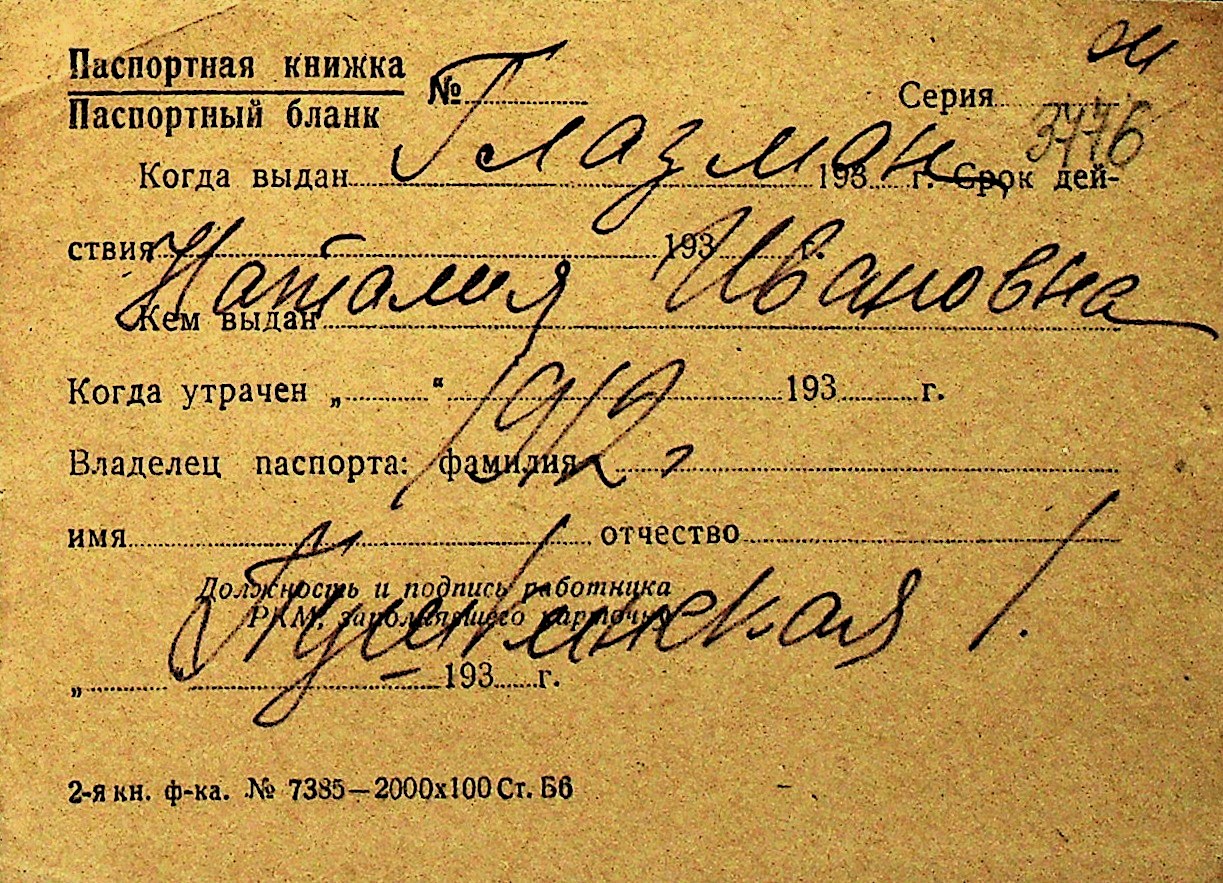 Паспортная книжка
Паспортный бланк
№ Серия
3776
Глазман
Когда выдан 193 г. Срок дей-
ствия 193 г.
Наталия Ивановна
Кем выдан
1912
Когда утрачен „ “ 193 г.
Владелец паспорта: фамилия
имя отчество
Должность и подпись работника
РКМ, заполнявшего карточку
Пушкинская 1.
„ “ 193 г.
2-я кн. ф-ка. № 7385—2000х100 Ст. Б6